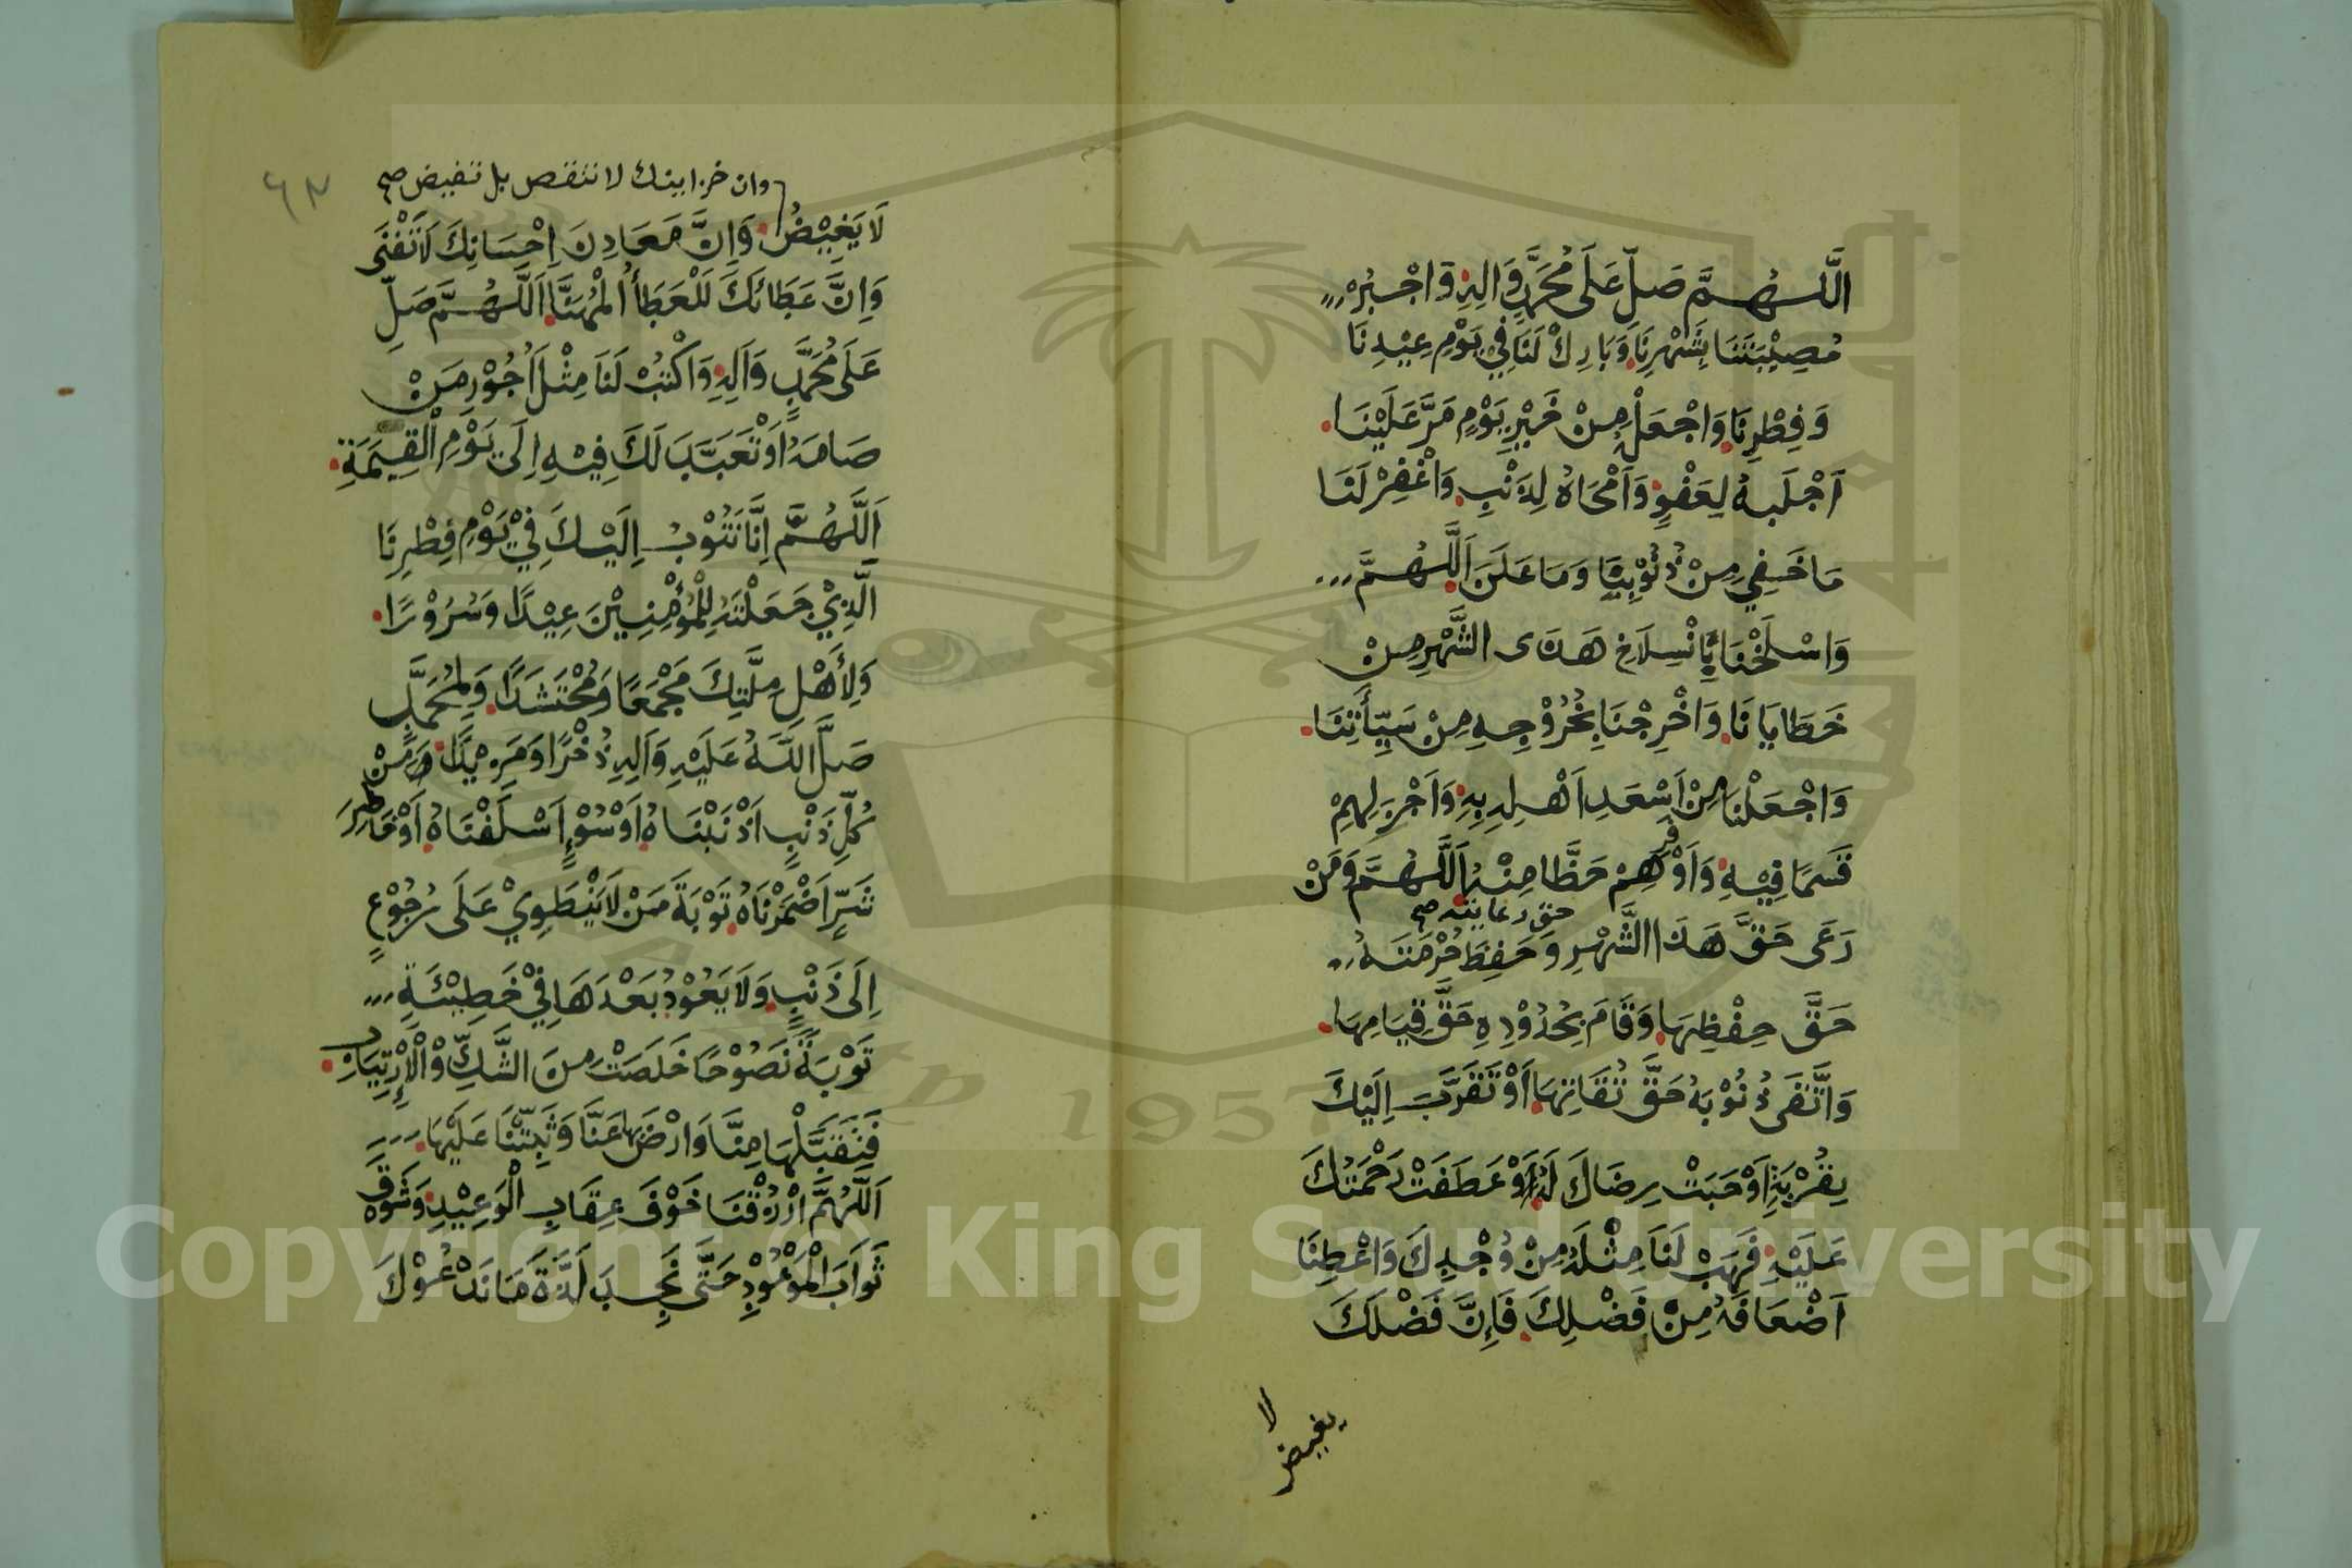 اَللّٰهُمَّ صَلِّ عَلَى مُحَمَّدٍ وَاٰلِهِ وَاجْبُرْ
مُصِيْبَتَنَا بِشَهْرِنَا وَبَارِكْ لَنَا فِي يَوْمِ عِيْدِنَا
وَفِطْرِنَا وَاجْعَلْهُ مِنْ خَيْرِ يَوْمٍ مَرَّ عَلَيْنَا
اَجْلَبهُ لِعَفْوٍ وَاَمْحَاهُ لِذَنْبٍ وَاغْفِرْ لَنَا
مَا خَفِيَ مِنْ ذُنُوْبِنَا وَمَا عَلَنَ اَللّٰهُمَّ
وَاسْلَخْنَا بِانْسِلَاخِ هَذَى الشَّهْرِ مِنْ
خَطَايَانَا وَاخْرِجْنَا بِخُرُوْجِهِ مِنْ سَيِّأَتِنَا
وَاجْعَلْنَا مِنْ اَسْعَدِ اَهْلِهِ بِهِ وَاَجْزَلِهِمْ
قَسَمًا فِيْهِ وَاَوْفَرِهِمْ حَظًّا مِنْهُ اَللّٰهُمَّ وَمَنْ
حق رعايته صح
رَعَى حَقَّ هَذَا الشَّهْرِ وَحَفِظَ حُرْمَتَهُ
حَقَّ حِفْظِهَا وَقَامَ بِحُدُوْدِهِ حَقَّ قِيَامِهَا
وَاتَّقَى ذُنُوْبَهُ حَقَّ تُقَاتِهَا اَوْ تَقَرَّبَ اِلَيْكَ
بِقُرْبَةٍ اَوْجَبَتْ رِضَاكَ لَهُ وَعَطَفَتْ رَحْمَتَكَ
عَلَيْهِ فَهَبْ لَنَا مِثْلَهُ مِنْ وُجْدِكَ وَاعْطِنَا
اَضْعَافَهُ مِنْ فَضْلِكَ فَاِنَّ فَضْلَكَ
لا يغيض
٦٣
وان خزاينك لا تنقص بل تفيض صح
لَا يَغِيْضُ وَاِنَّ مَعَادِنَ اِحْسَانِكَ لَا تَفْنَى
وَاِنَّ عَطَائَكَ لَلْعَطَاُ الْمُهَنَّا اَللّٰهُمَّ صَلِّ
عَلَى مُحَمَّدٍ وَاَلِهِ وَاكْتُبْ لَنَا مِثْلَ اُجُوْرِ مَنْ
صَامَهُ اَوْ تَعَبَّدَ لَكَ فِيْهِ اِلَى يَوْمِ الْقِيٰمَةِ
اَللّٰهُمَّ اِنَّا نَتُوْبُ اِلَيْكَ فِيْ يَوْمِ فِطْرِنَا
الَّذِيْ جَعَلْتَهُ لِلْمُؤْمِنِيْنَ عِيْدًا وَسُرُوْرًا
وَلِأَهْلِ مِلَّتِكَ مَجْمَعًا وَمُحْتَشَدًا وَلِمُحَمَّدٍ
صَلَّى اللَّهُ عَلَيْهِ وَاَلِهِ ذُخْرًا وَمَزِيْدًا وَمِنْ
كُلِّ ذَنْبٍ اَذْنَبْنَاهُ اَوْ سُوْءٍ اَسْلَفْنَاهُ اَوْ خَاطِرَ
شَرٍّ اَضْمَرْنَاهُ تَوْبَةَ مَنْ لَا يَنْطَوِيْ عَلَى رُجُوْعٍ
اِلَى ذَنْبٍ وَلَا يَعُوْدُ بَعْدَهَا فِيْ خَطِيْئَةٍ
تَوْبَةً نَصُوْحًا خَلَصَتْ مِنَ الشَّكِّ وَالْاِرْتِيَابِ
فَتَقَبَّلْهَا مِنَّا وَارْضَ بِهَا عَنَّا وَثَبِّتْنَا عَلَيْهَا
اَللّٰهُمَّ ارْزُقْنَا خَوْفَ عِقَابِ الْوَعِيْدِ وَشَوْقَ
ثَوَابَ الْمَوْعُوْدِ حَتَّى نَجِدَ لَذَّةَ مَا نَدْعُوْكَ